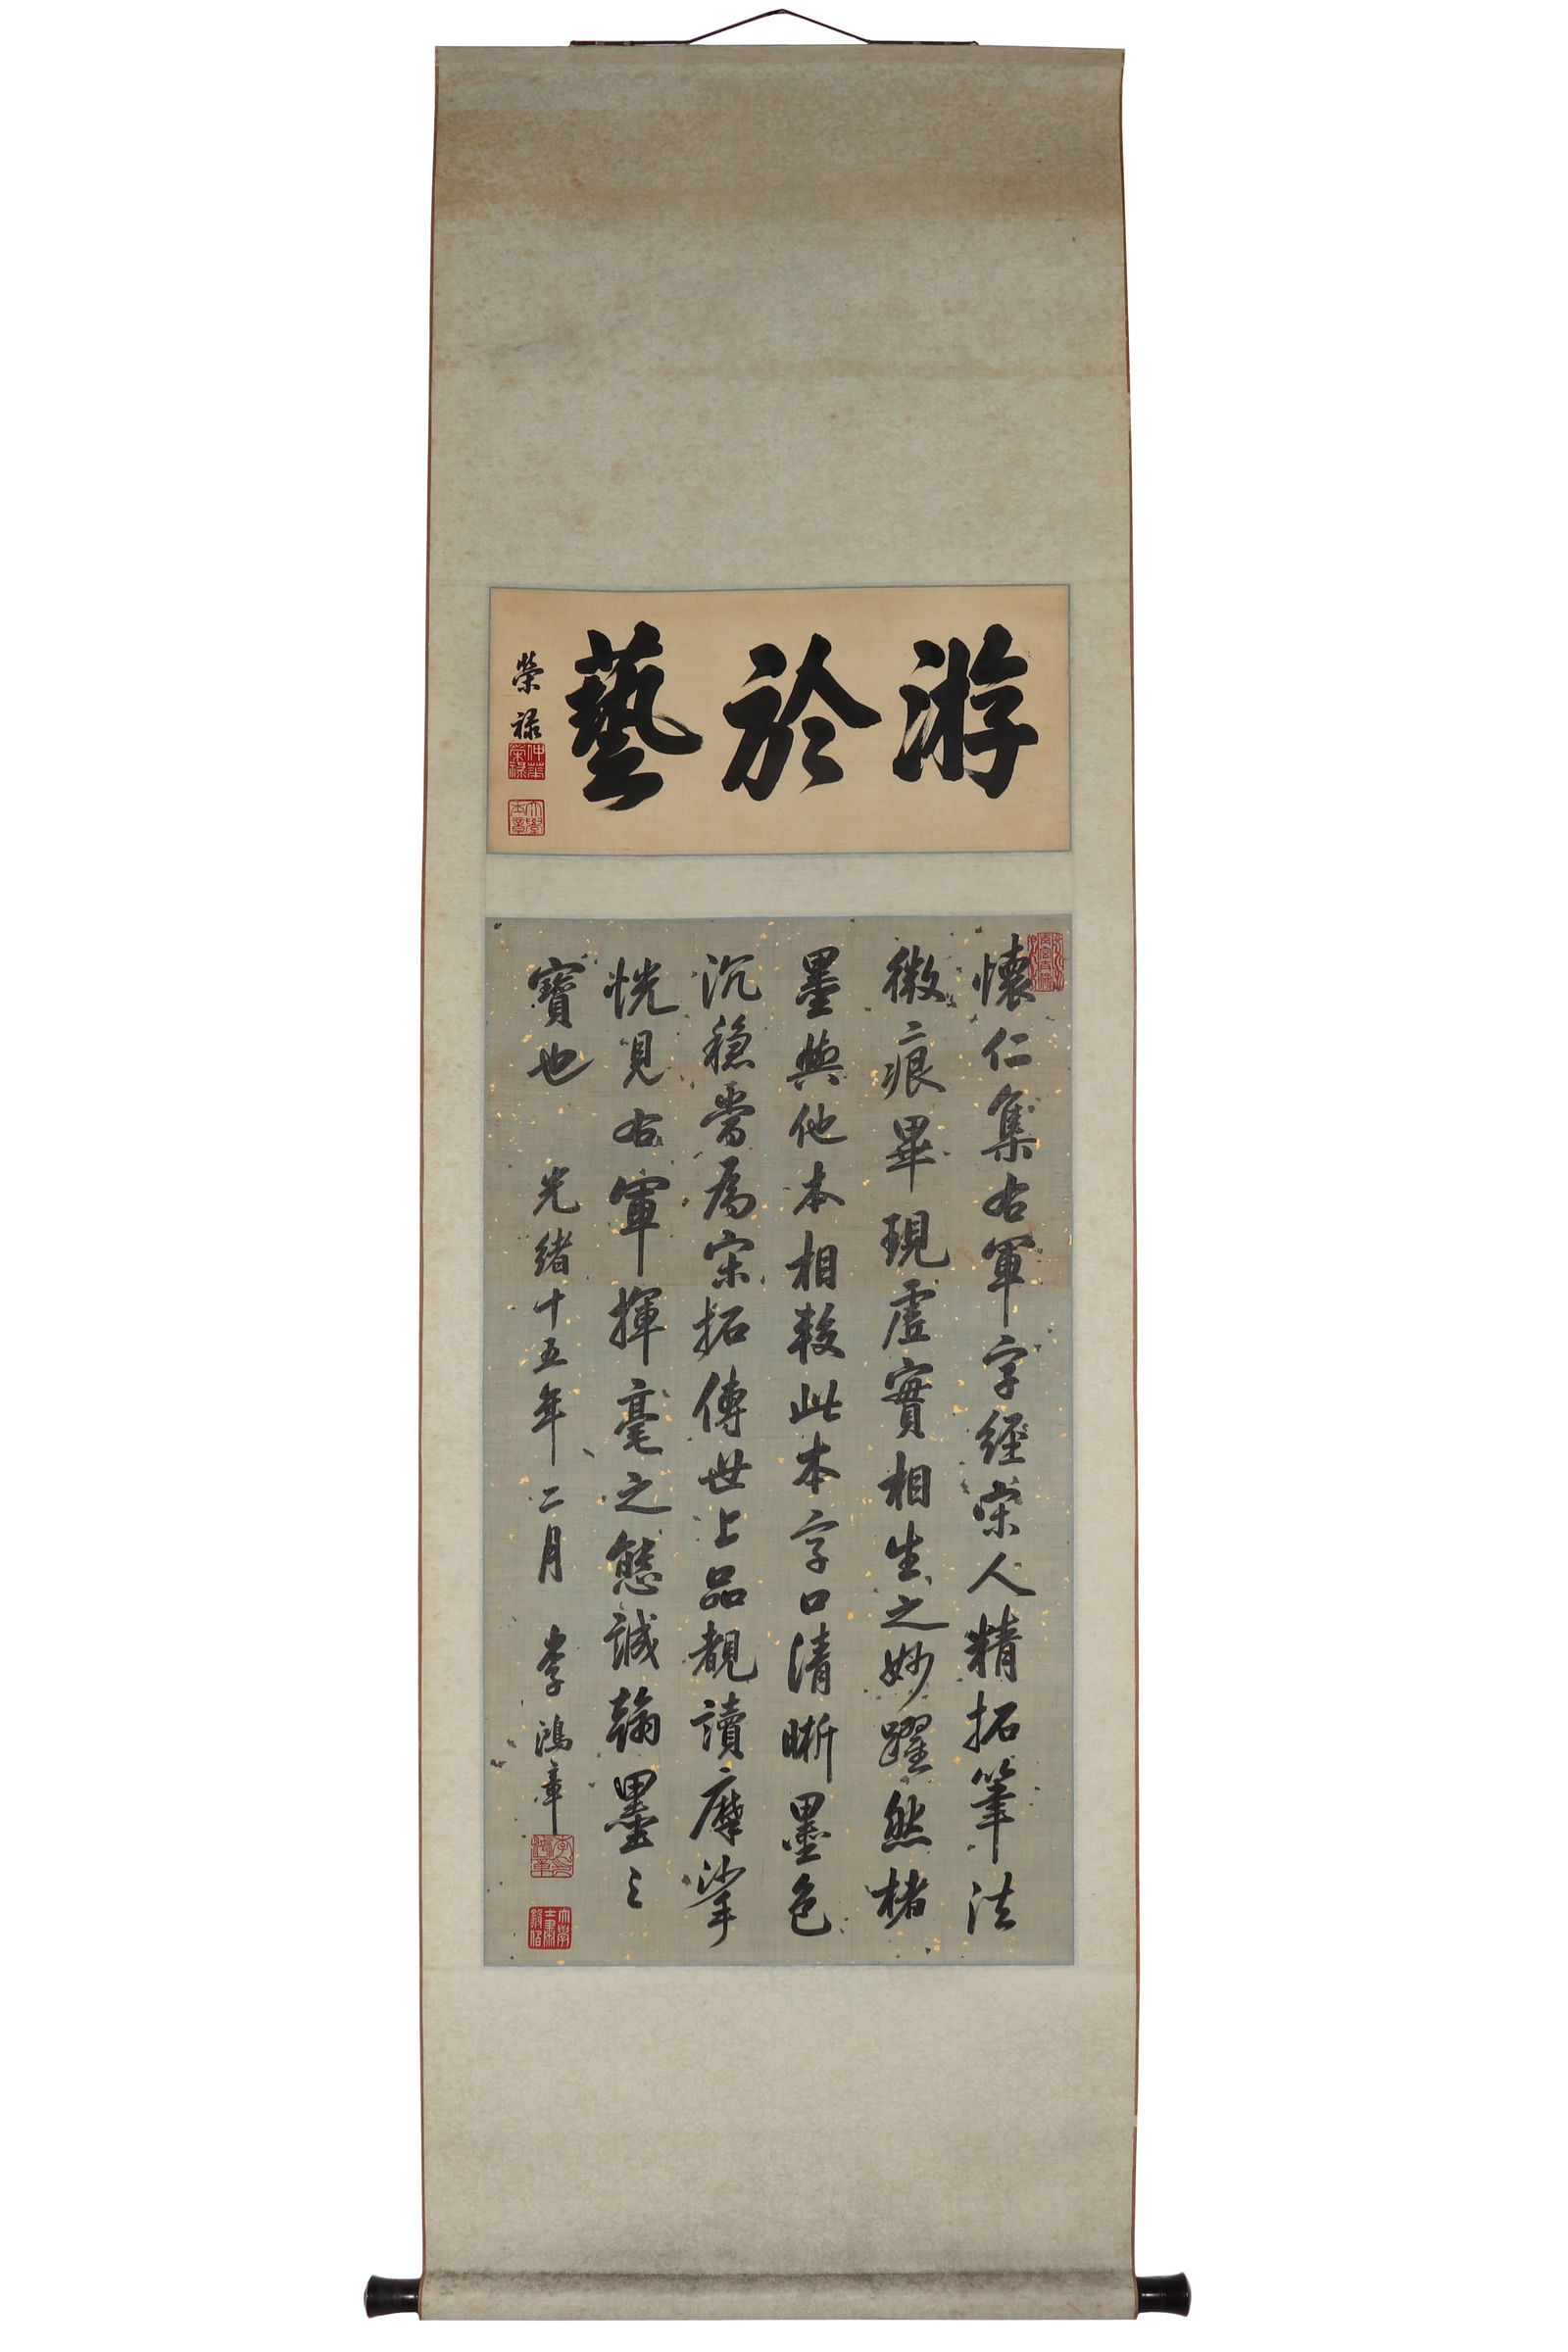 游於藝
榮祿
仲華
榮祿
大學
士章
懷仁集右軍字經宋人精拓筆法
微痕畢現虛實相生之妙躍然楮
墨與他本相較此本字口清晰墨色
沉穩當為宋拓傳世上品觀讀摩挲
恍見右軍揮毫之態誠翰墨之
寶也 光緒十五年二月 李鴻章
大學
士肅
毅伯